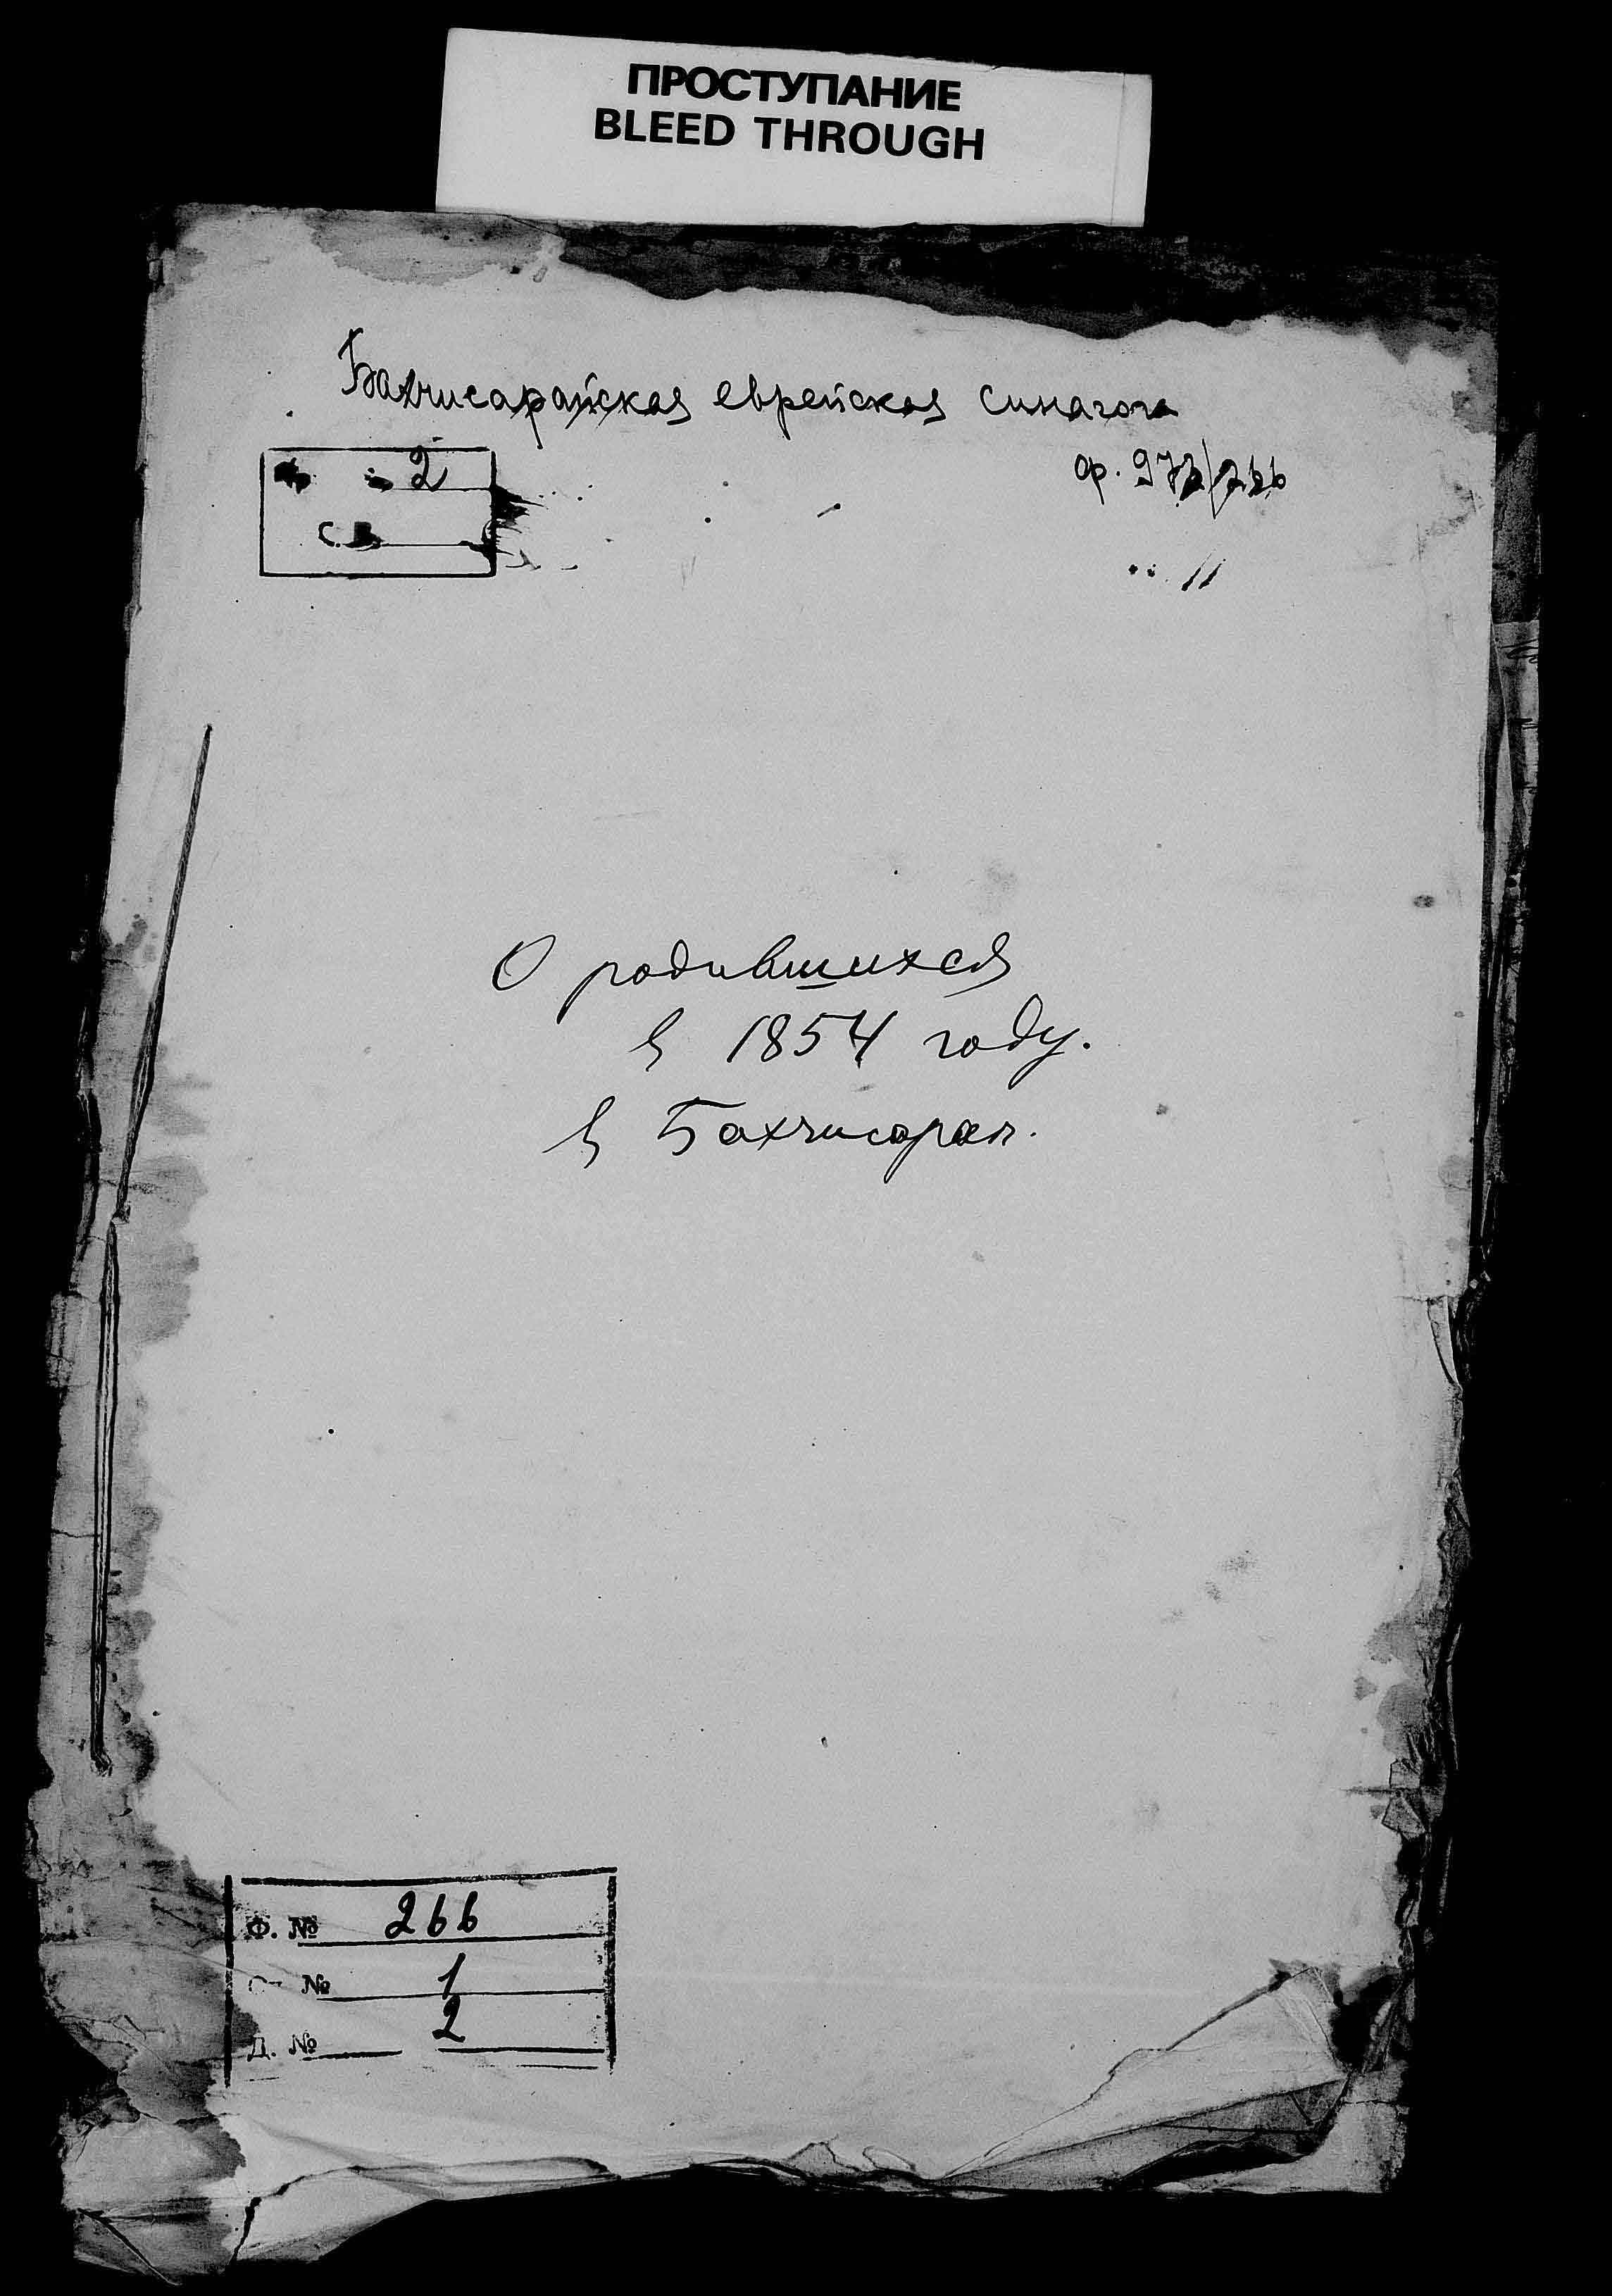 ПРОСТУПАНИЕ
BLEED THROUGH
Бахчисарайская еврейская синагога
2
ф. 972/266
О родившихся
в 1854 году.
в Бахчисарае.
Ф. № 266
№ 1
Д. № 2